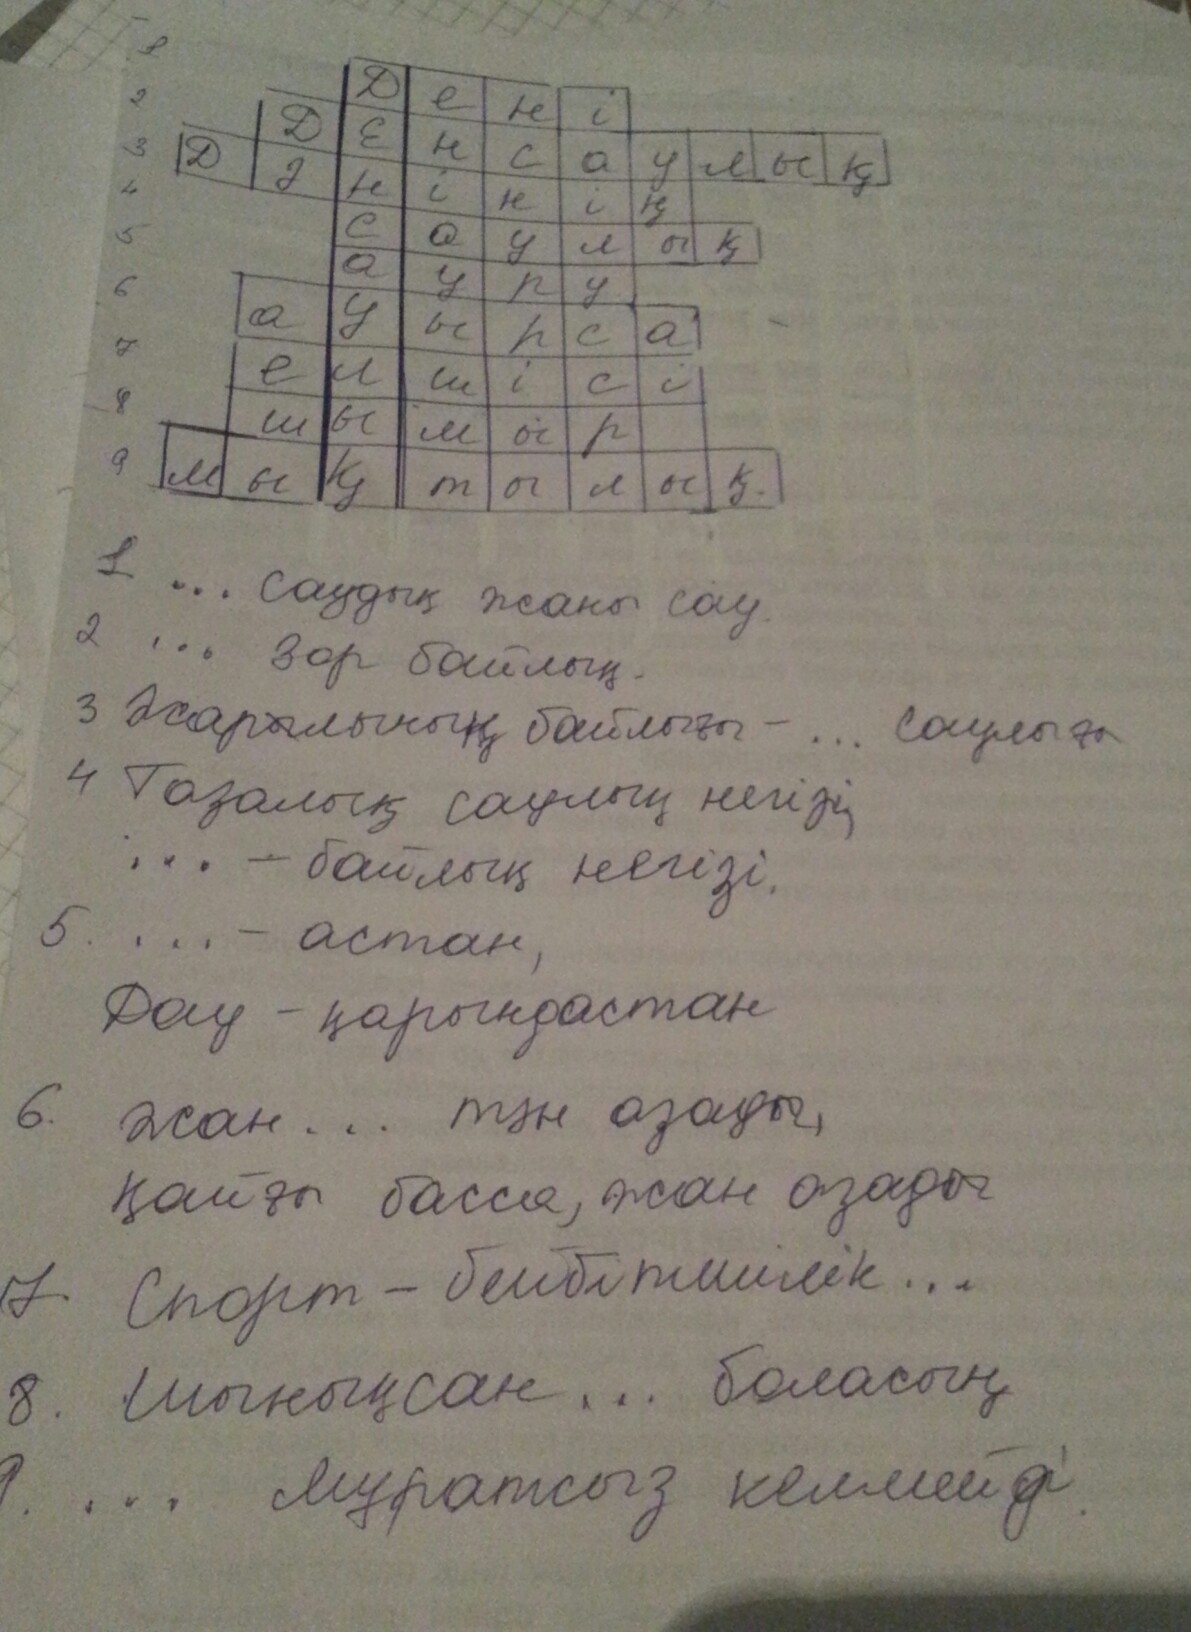 1 Дені
2 Денсаулық
3 Дэнінің
4 саулық
5 ауру
6 ауырса
7 елшісі
8 шымыр
9 мықтылық.
1 ... саудың жаны сау.
2 ... зор байлық.
3 Жарылының байлығы - ... саулығы
4 Тазалық саулық негізі,
... - байлық негізі.
5. ... - астан,
Дау - қарындастан
6. жан ... тән азады,
қайғы басса, жан азады
7. Спорт - бейбітшілік ...
8. Шынықсан ... боласың
9. ... мұратсыз келмейді.